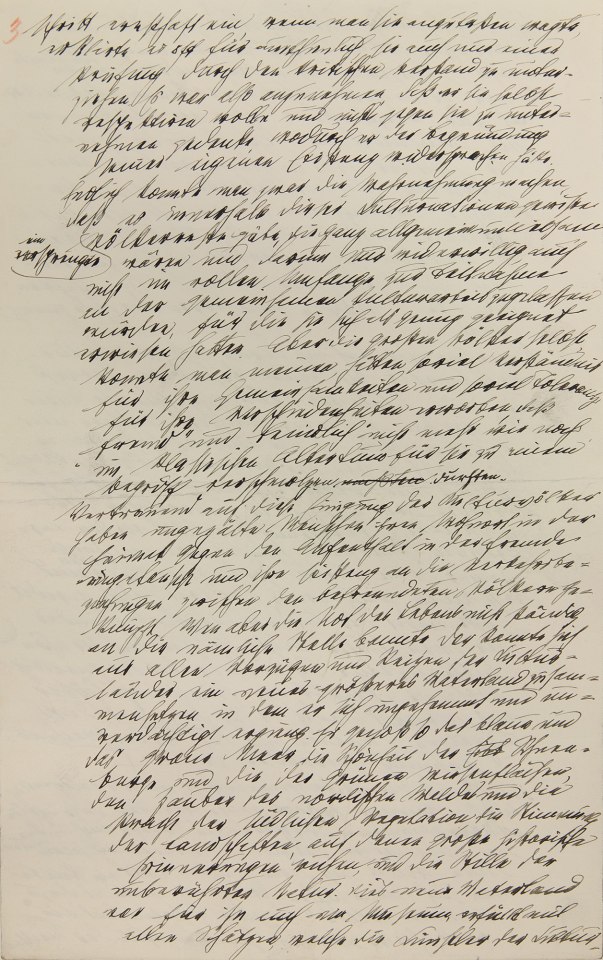 3
schritt ernsthaft ein, wenn man sie anzutasten wagte,
erklärte es oft für unthunlich sie auch nur einer
Prüfung durch den kritischen Verstand zu unter-
ziehen. Es war also anzunehmen, daß er sie selbst
respektiren wolle und nichts gegen sie zu unter-
nehmen gedenke, wodurch er der Begründung
seiner eigenen Existenz widersprochen hätte.
Endlich konnte man zwar die Wahrnehmung machen,
daß es innerhalb dieser Kulturnationen gewisse
ein
gesprengte Völkerreste gäbe, die ganz allgemein unliebsam
wären und darum nur widerwillig, auch
nicht im vollen Umfange zur Teilnahme
an der gemeinsamen Kulturarbeit zugelassen
würden, für die sie sich als genug geeignet
erwiesen hatten. Aber die großen Völker selbst
konnte man meinen, hätten soviel Verständnis
für ihre Gemeinsamkeiten und soviel Toleranz
für ihre Verschiedenheiten erworben, daß
„fremd“ und „feindlich“ nicht mehr wie noch
im klassischen Altertum für sie zu einem
Begriff verschmelzen durften.
Vertrauend auf diese Einigung der Kulturvölker
haben ungezählte Menschen ihren Wohnort in der
Heimat gegen den Aufenthalt in der Fremde
eingetauscht und ihre Existenz an die Verkehrsbe-
ziehungen zwischen den befreundeten Völkern ge-
knüpft. Wen aber die Not des Lebens nicht ständig
an die nämliche Stelle bannte, der konnte sich
aus allen Vorzügen und Reizen der Kultur-
länder ein neues größeres Vaterland zusam-
mensetzen, in dem er sich ungehemmt und un-
verdächtigt erging. Er genoß so das blaue und
das graue Meer, die Schönheit der Schnee-
berge und die der grünen Wiesenflächen,
den Zauber des nordischen Waldes und die
Pracht der südlichen Vegetation, die Stimmung
der Landschaften, auf denen große historische
Erinnerungen ruhen, und die Stille der
unberührten Natur. Dies neue Vaterland
war für ihn auch ein Museum, erfüllt mit
allen Schätzen, welche die Künstler der Kultur-